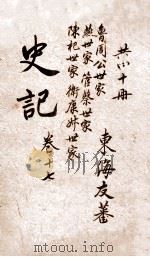 共六十冊
魯周公世家
燕世家 管蔡世家
陳杞世家 衛康叔世家
史記 卷之十七
東海友蕃
www.tushu007.com